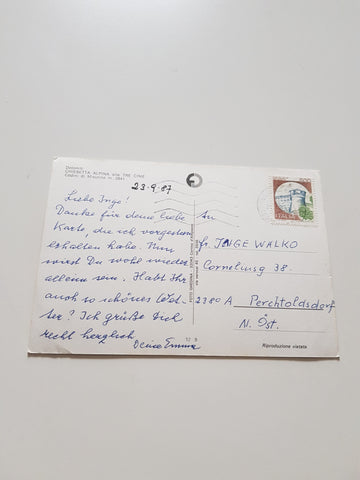 Dolomiti
CHIESETTA ALPINA alle TRE CIME
23-9.87
Liebe Inge!
Danke für deine liebe
Karte, die ich vorgestern
erhalten habe. Nun
wirst Du wohl wieder
allein sein. Habt Ihr
auch so schönes Wet-
ter? Ich grüße Dich
recht herzlich
Deine Emma
An
Fr. INGE WALKO
Corneliusg 38.
2380 A Perchtoldsdorf
N. Öst.
ITALIA
Riproduzione vietata